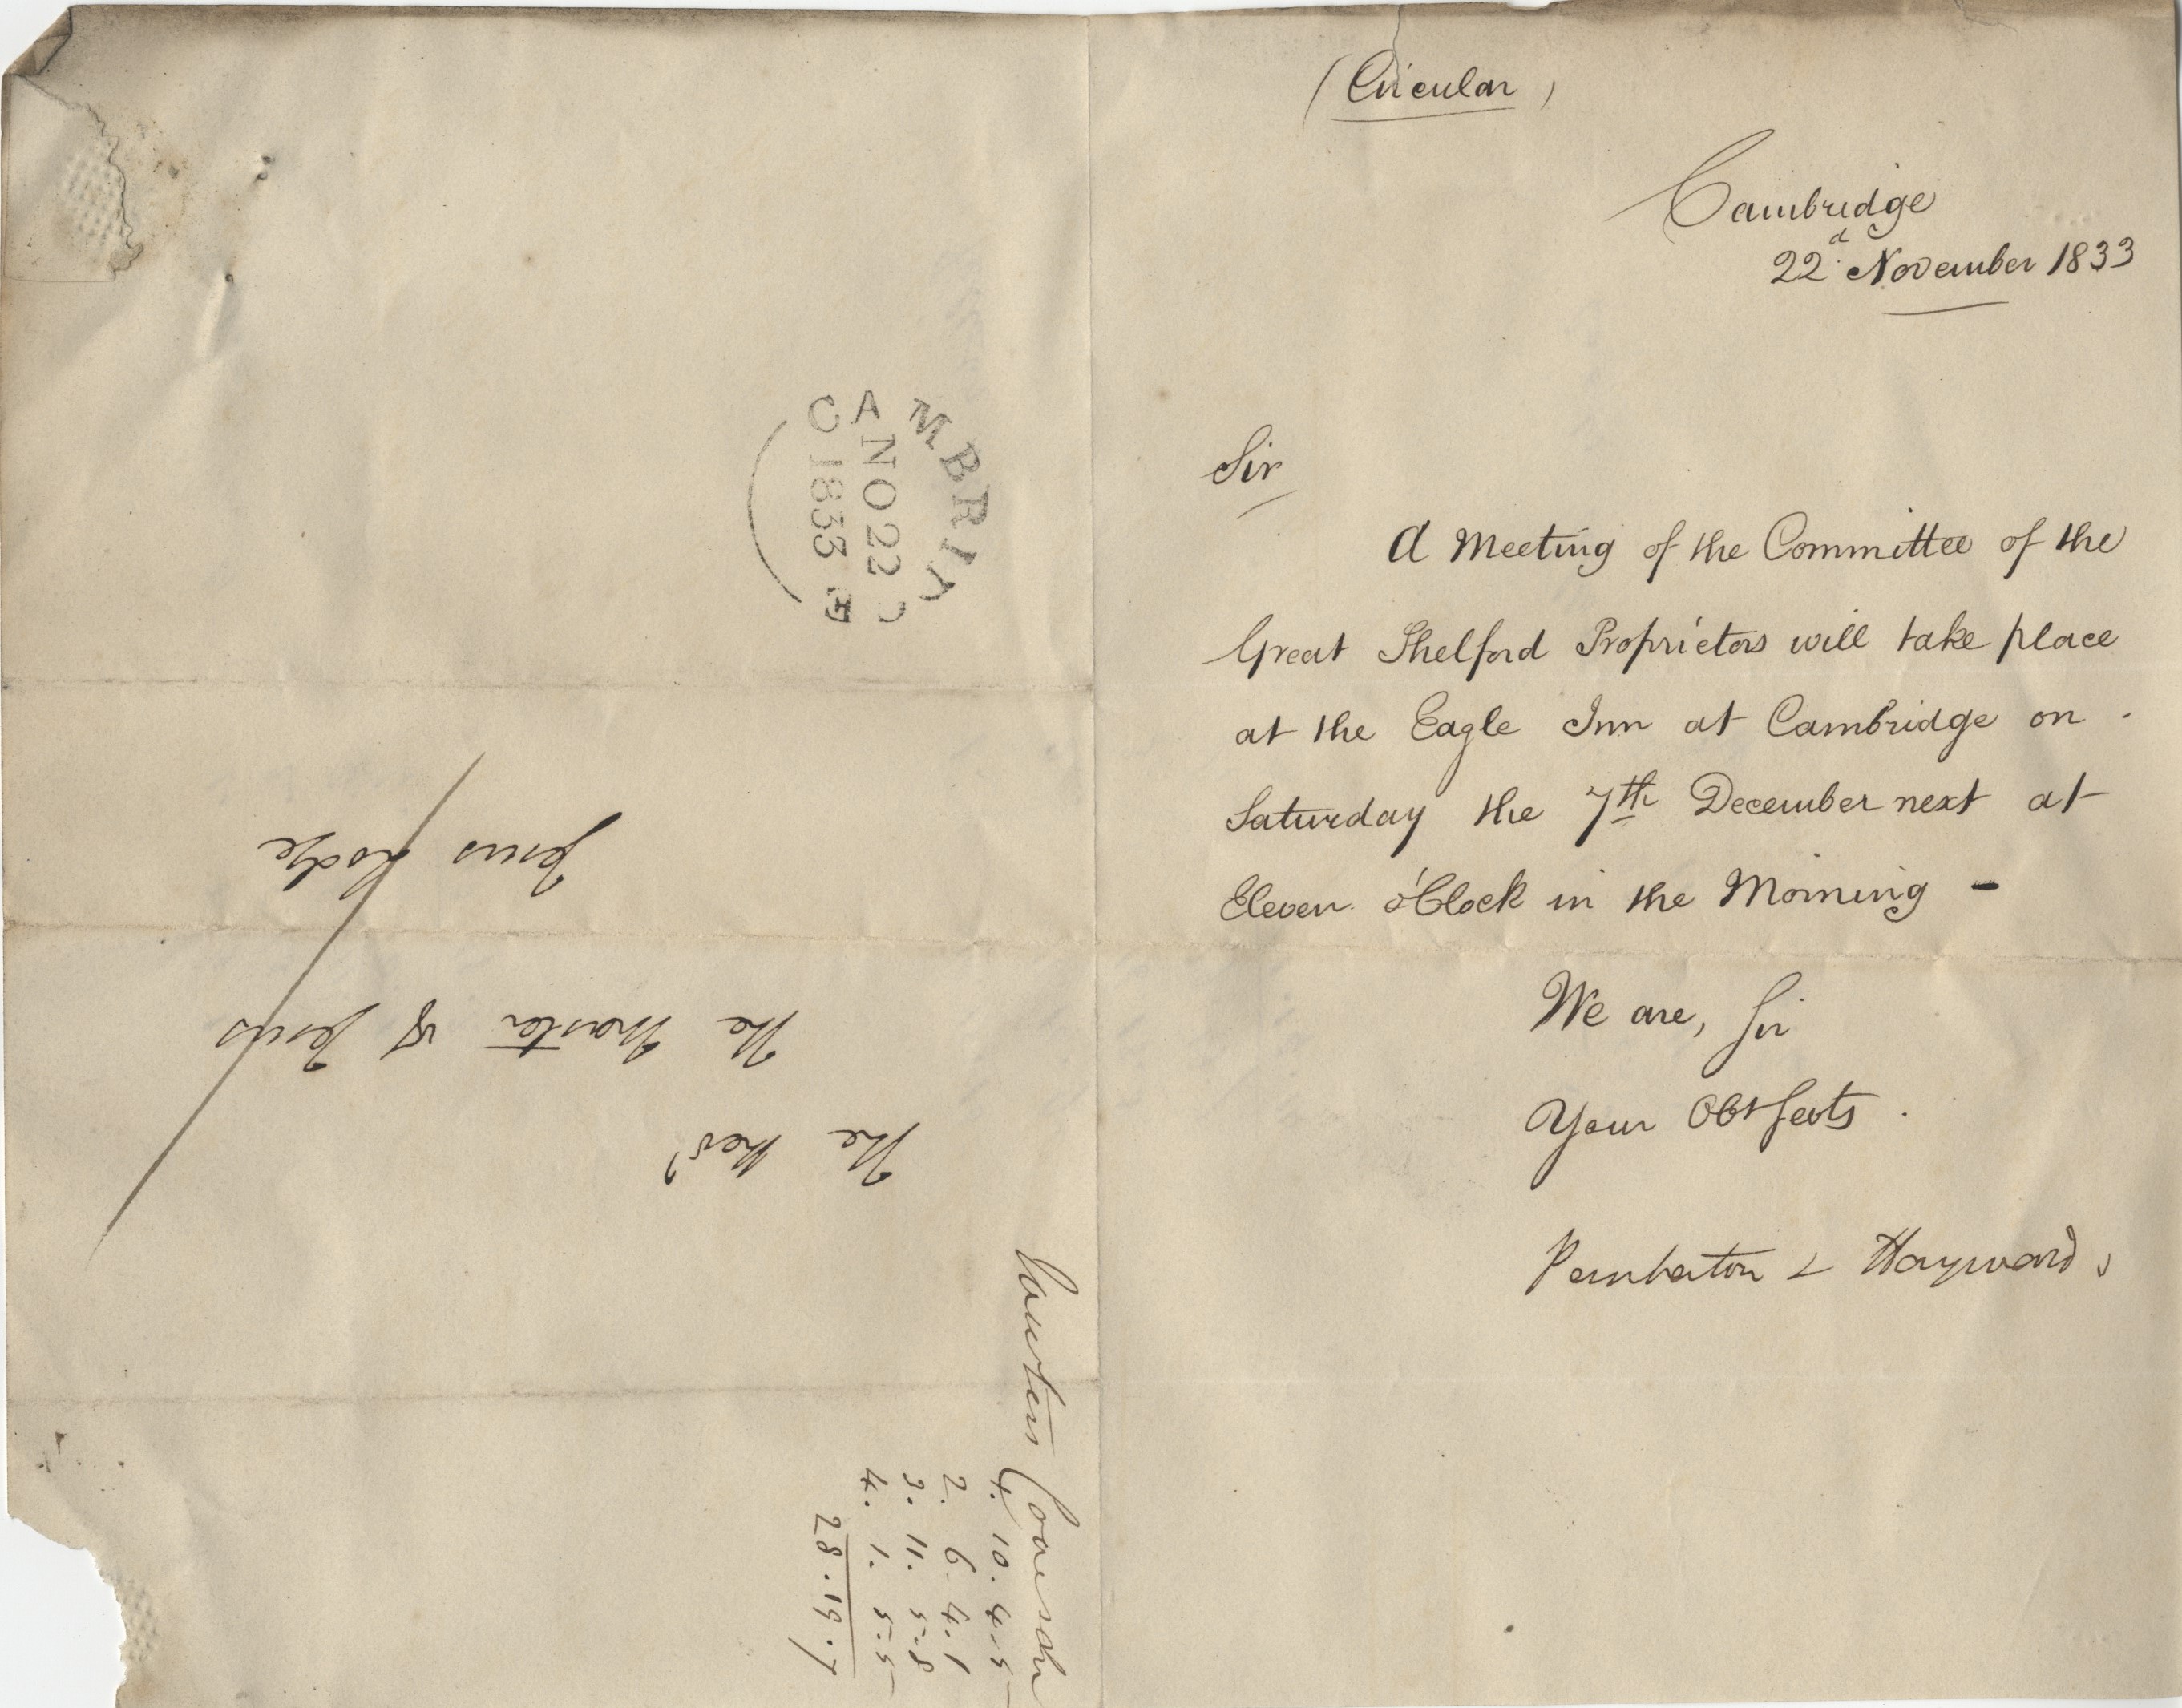 (Circular)
Cambridge
22d. November 1833
Sir
A Meeting of the Committee of the
Great Shelford Proprietors will take place
at the Eagle Inn at Cambridge on
Saturday the 7th December next at
Eleven o'Clock in the Morning -
We are, Sir
Your Obt Servts.
Pemberton & Hayward
CAMBRIDGE
NO 22
1833
The Revd
The Master of Jesus
Jesus Lodge
4. 10. 4. 5
2. 6. 4. 1
3. 11. 5. 8
4. 1. 5. 5
28. 19. 7